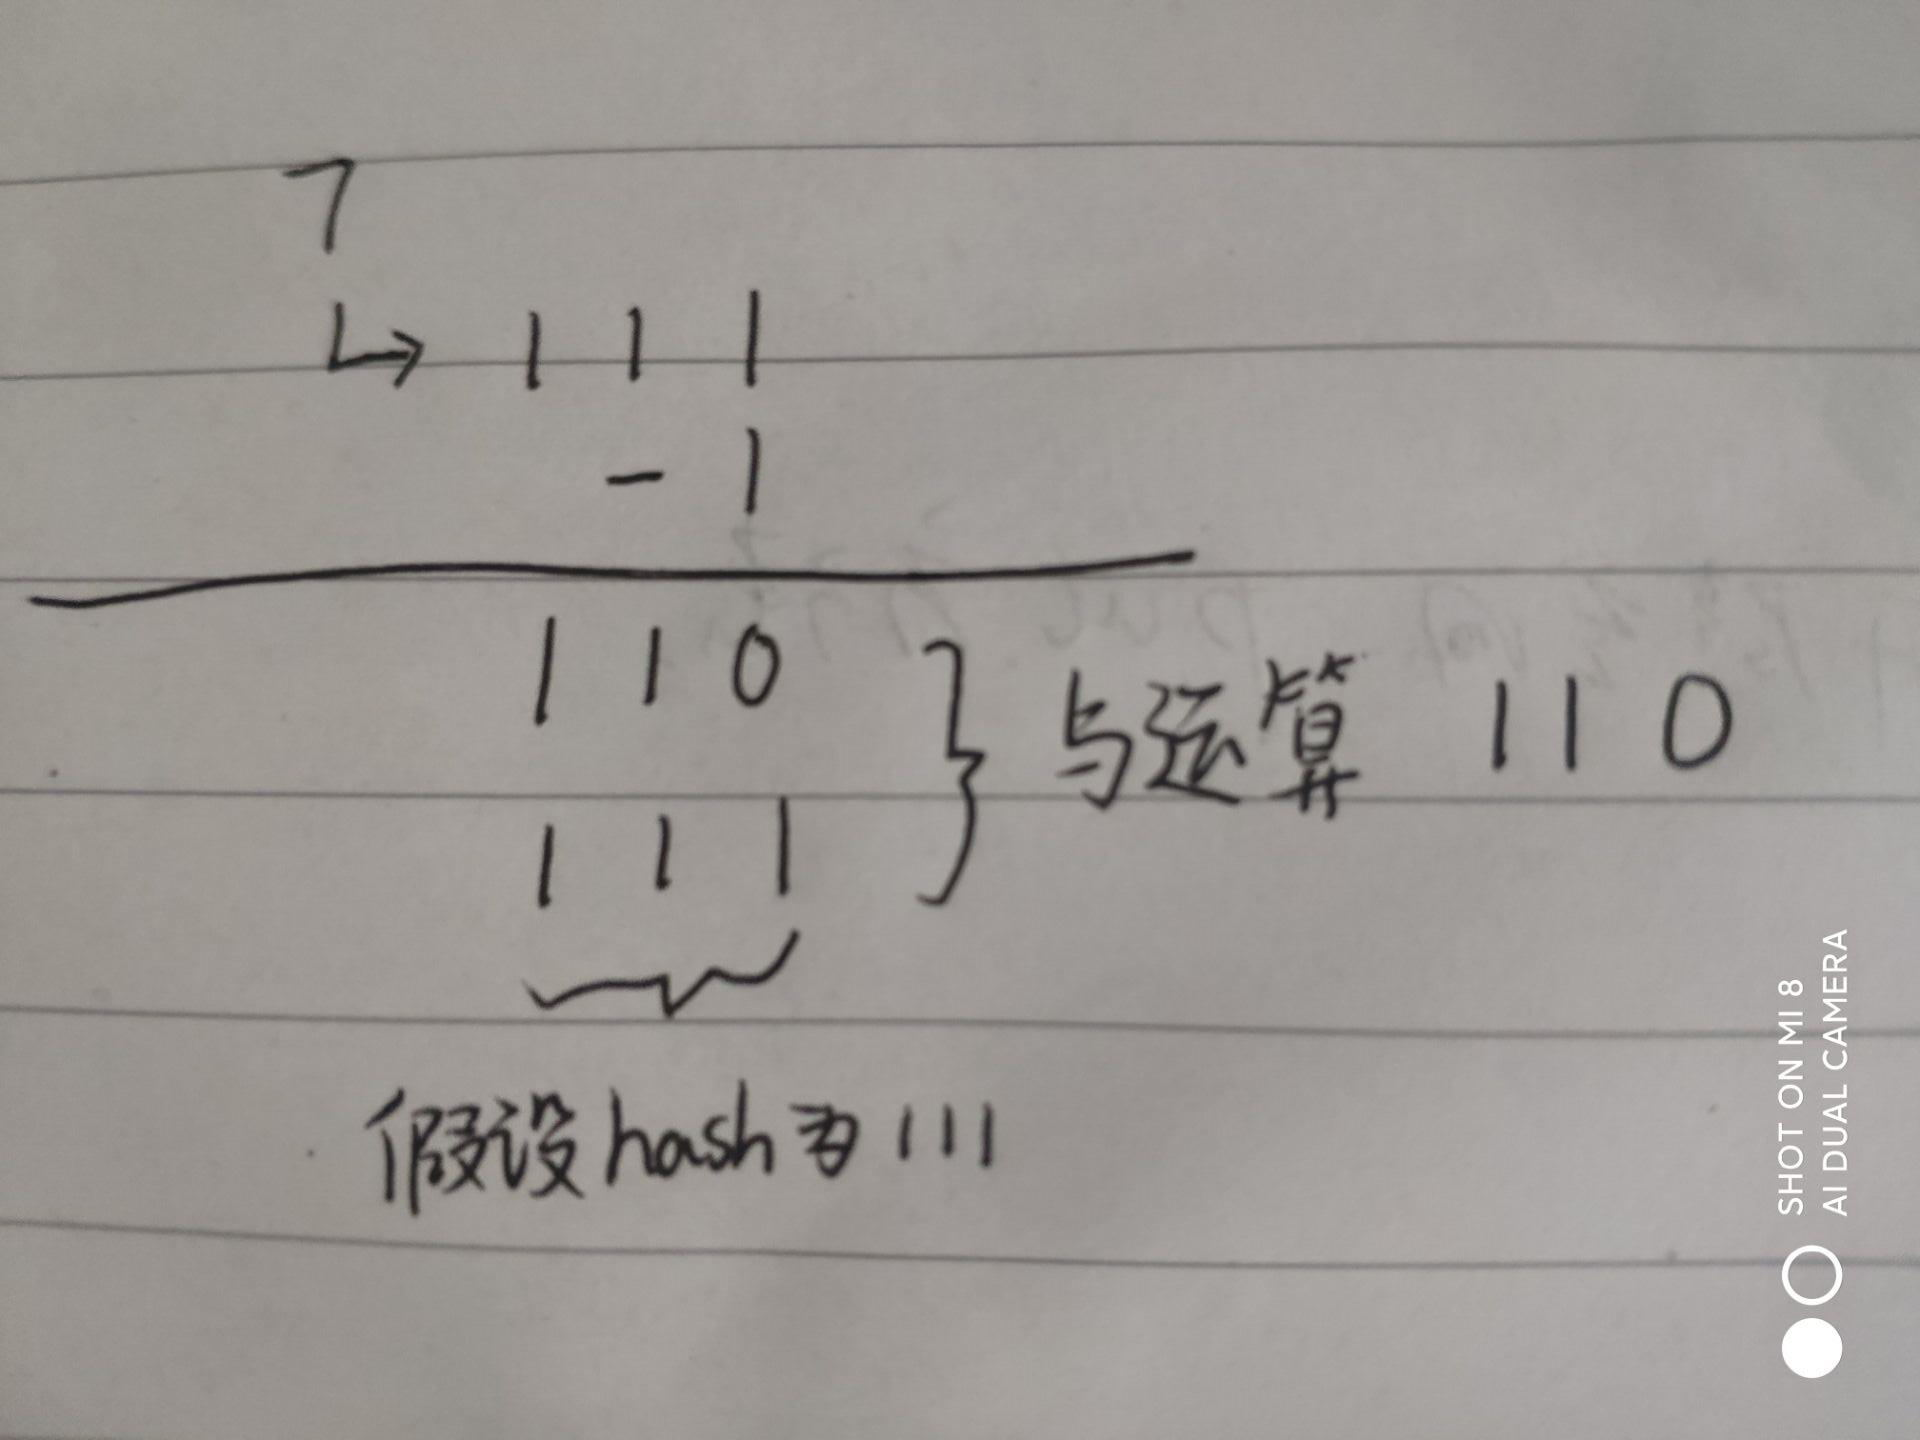 7
↳ 1 1 1
- 1
1 1 0
与运算 1 1 0
1 1 1
假设hash为111
SHOT ON MI 8
AI DUAL CAMERA